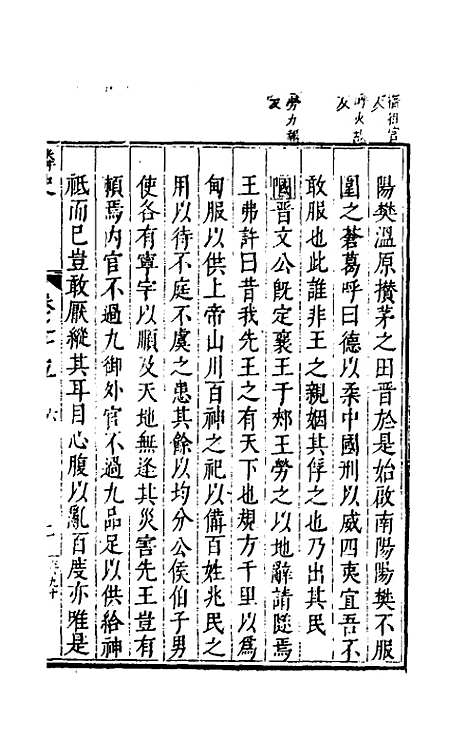 陽樊溫原攢茅之田晉於是始啟南陽陽樊不服
圍之蒼葛呼曰德以柔中國刑以威四夷宜吾不
敢服也此誰非王之親姻其俘之也乃出其民
國晉文公既定襄王于郟王勞之以地辭請隧焉
王弗許曰昔我先王之有天下也規方千里以為
甸服以供上帝山川百神之祀以備百姓兆民之
用以待不庭不虞之患其餘以均分公侯伯子男
使各有寧宇以順及天地無逢其災害先王豈有
賴焉內官不過九御外官不過九品足以供給神
祇而已豈敢厭縱其耳目心腹以亂百度亦唯是
呼火故
反
勞力報
反